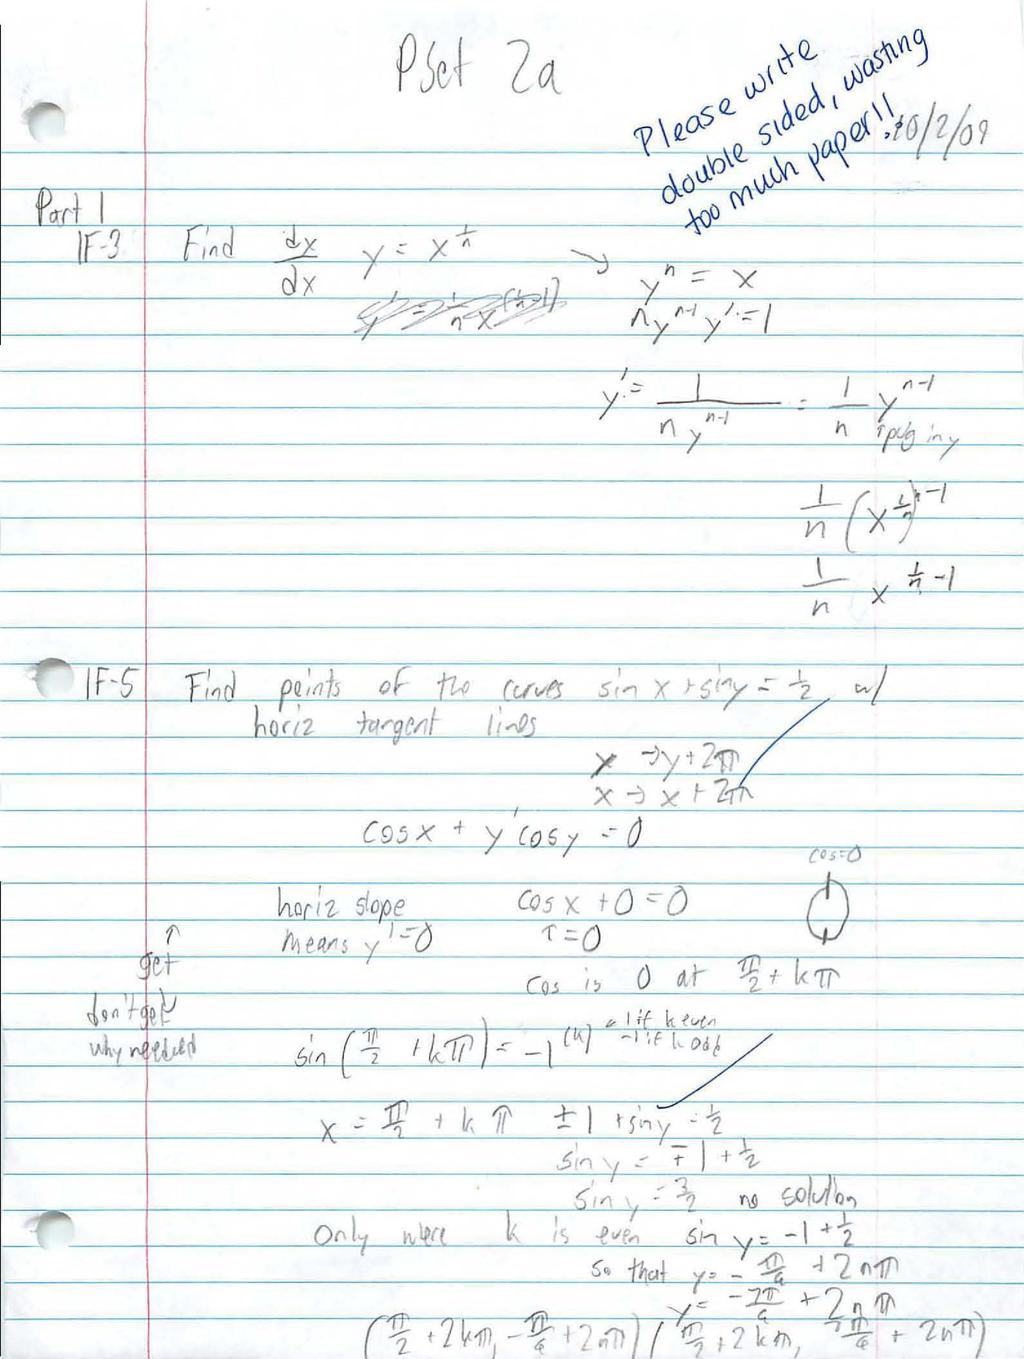 PSet 2a
Please write
double sided, wasting
too much paper!!
10/2/09
Part 1
1F-3 Find dx/dx y = x^(1/n) → y^n = x
n y^(n-1) y' = 1
y' = 1/(n y^(n-1)) = 1/n y^(n-1)
↑ plug in y
1/n (x^(1/n))^(n-1)
1/n x^(1/n - 1)
1F-5 Find points of the curves sin x + sin y = 1/2 w/
horiz tangent lines
y → y + 2π
x → x + 2π
cos x + y' cos y = 0
cos=0
horiz slope cos x + 0 = 0
means y' = 0 ↑ = 0
↑
get
cos is 0 at π/2 + kπ
don't get
why needed
sin (π/2 + kπ) = -1^(k) = 1 if k even
-1 if k odd
x = π/2 + kπ ±1 + sin y = 1/2
sin y = ∓1 + 1/2
sin y = 3/2 no solution
Only where k is even sin y = -1 + 1/2
so that y = -π/6 + 2nπ
y = -7π/6 + 2nπ
(π/2 + 2kπ, -π/6 + 2nπ) (π/2 + 2kπ, 7π/6 + 2nπ)